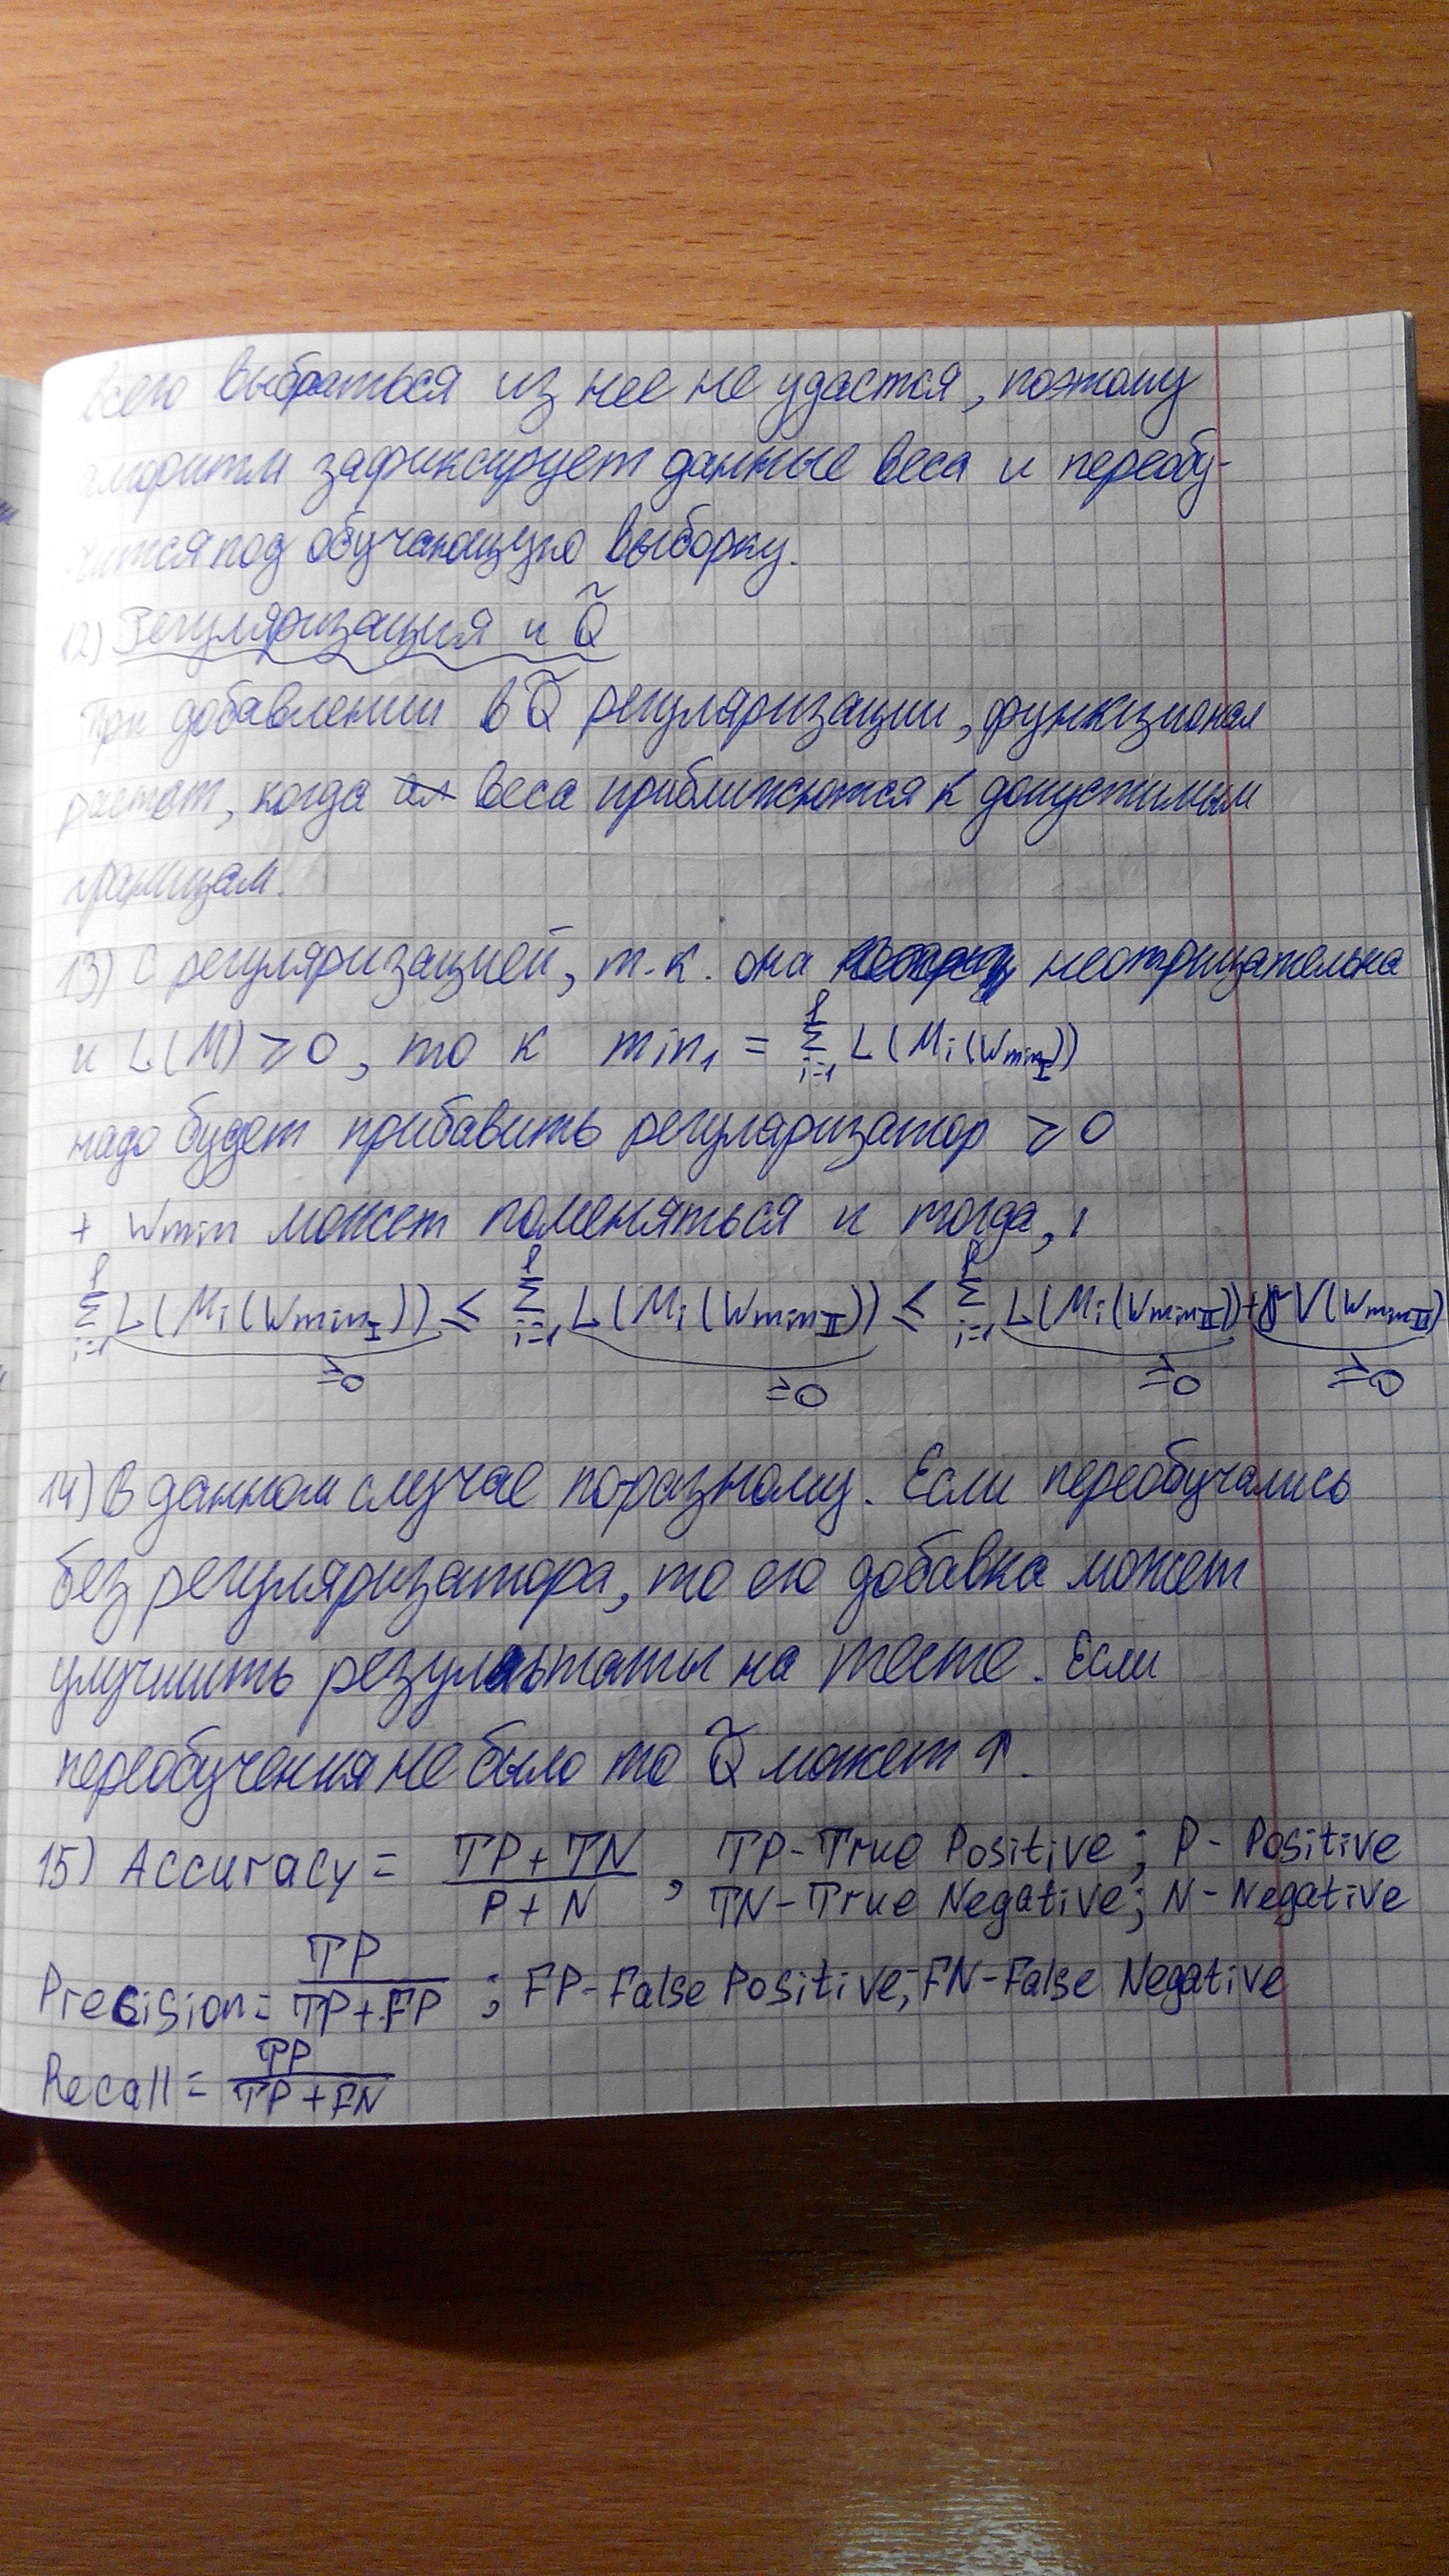 всего выбраться из нее не удастся, поэтому
алгоритм зафиксирует данные веса и переобу-
чится под обучающую выборку.
12) Регуляризация и Q̃
При добавлении в Q̃ регуляризации, функционал
растат, когда веса приближаются к допустимым
границам.
13) С регуляризацией, т.к. она неотрицательна
и L(M) ≥ 0, то к min₁ = Σ_{i=1}^{l} L(M_i(W_{min_I}))
надо будет прибавить регуляризатор ≥ 0
+ W_{min} может поменяться и тогда,
Σ_{i=1}^{l} L(M_i(W_{min_I})) ≤ Σ_{i=1}^{l} L(M_i(W_{min_{II}})) ≤ Σ_{i=1}^{l} L(M_i(W_{min_{II}})) + γV(W_{min_{II}})
≥0 ≥0 ≥0 ≥0
14) В данном случае по-разному. Если переобучались
без регуляризатора, то его добавка может
улучшить результаты на тесте. Если
переобучения не было то Q̃ может ↑.
15) Accuracy = (TP + TN)/(P + N), TP - True Positive; P - Positive
TN - True Negative; N - Negative
Precision = TP/(TP + FP); FP - False Positive, FN - False Negative
Recall = TP/(TP + FN)